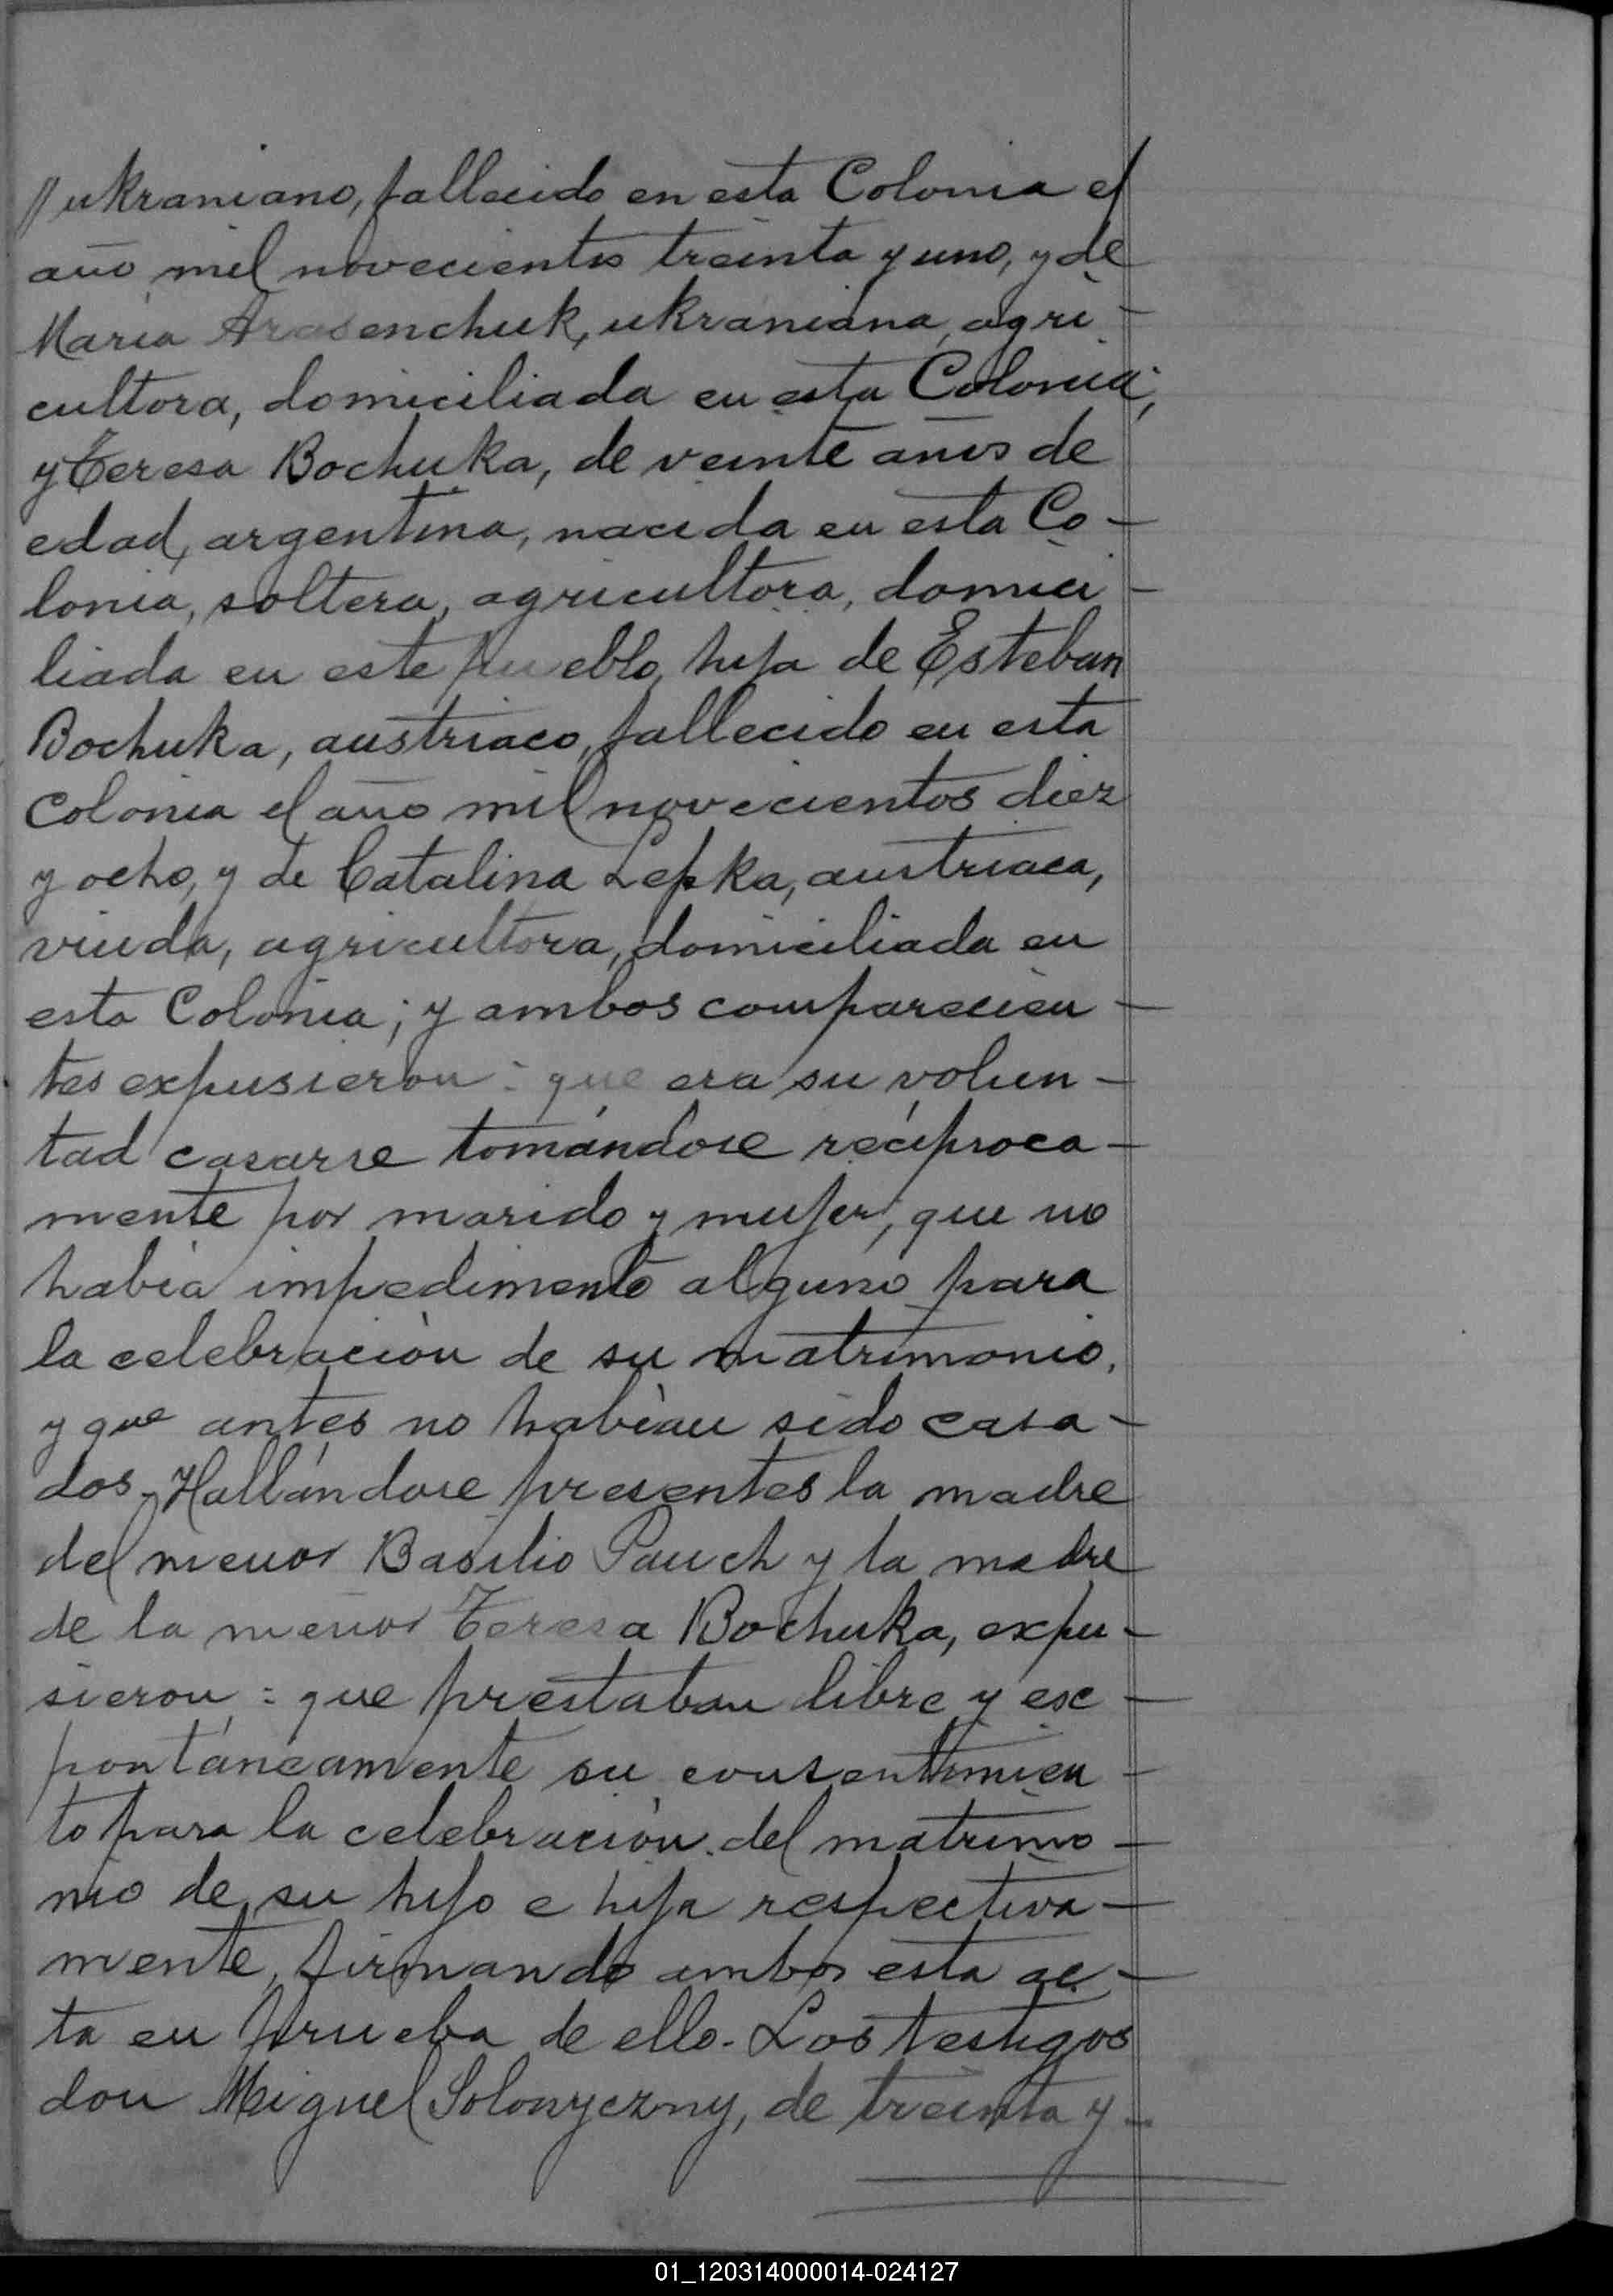 // ukraniano, fallecido en esta Colonia el
año mil novecientos treinta y uno, y de
Maria Arasenchuk, ukraniana, agri-
cultora, domiciliada en esta Colonia;
y Teresa Bochuka, de veinte años de
edad, argentina, nacida en esta Co-
lonia, soltera, agricultora, domici-
liada en este pueblo, hija de Esteban
Bochuka, austriaco, fallecido en esta
Colonia el año mil novecientos diez
y ocho, y de Catalina Lepka, austriaca,
viuda, agricultora, domiciliada en
esta Colonia; y ambos comparecien-
tes expusieron: que era su volun-
tad casarse tomándose recíproca-
mente por marido y mujer; que no
había impedimento alguno para
la celebración de su matrimonio,
y que antes no habían sido casa-
dos. Hallándose presentes la madre
del menor Basilio Pauch y la madre
de la menor Teresa Bochuka, expu-
sieron: que prestaban libre y esc-
pontáneamente su consentimien-
to para la celebración del matrimo-
nio de su hijo e hija respectiva-
mente, firmando ambos esta ac-
ta en prueba de ello. Los testigos
don Miguel Solonyczny, de treinta y-
01_120314000014-024127